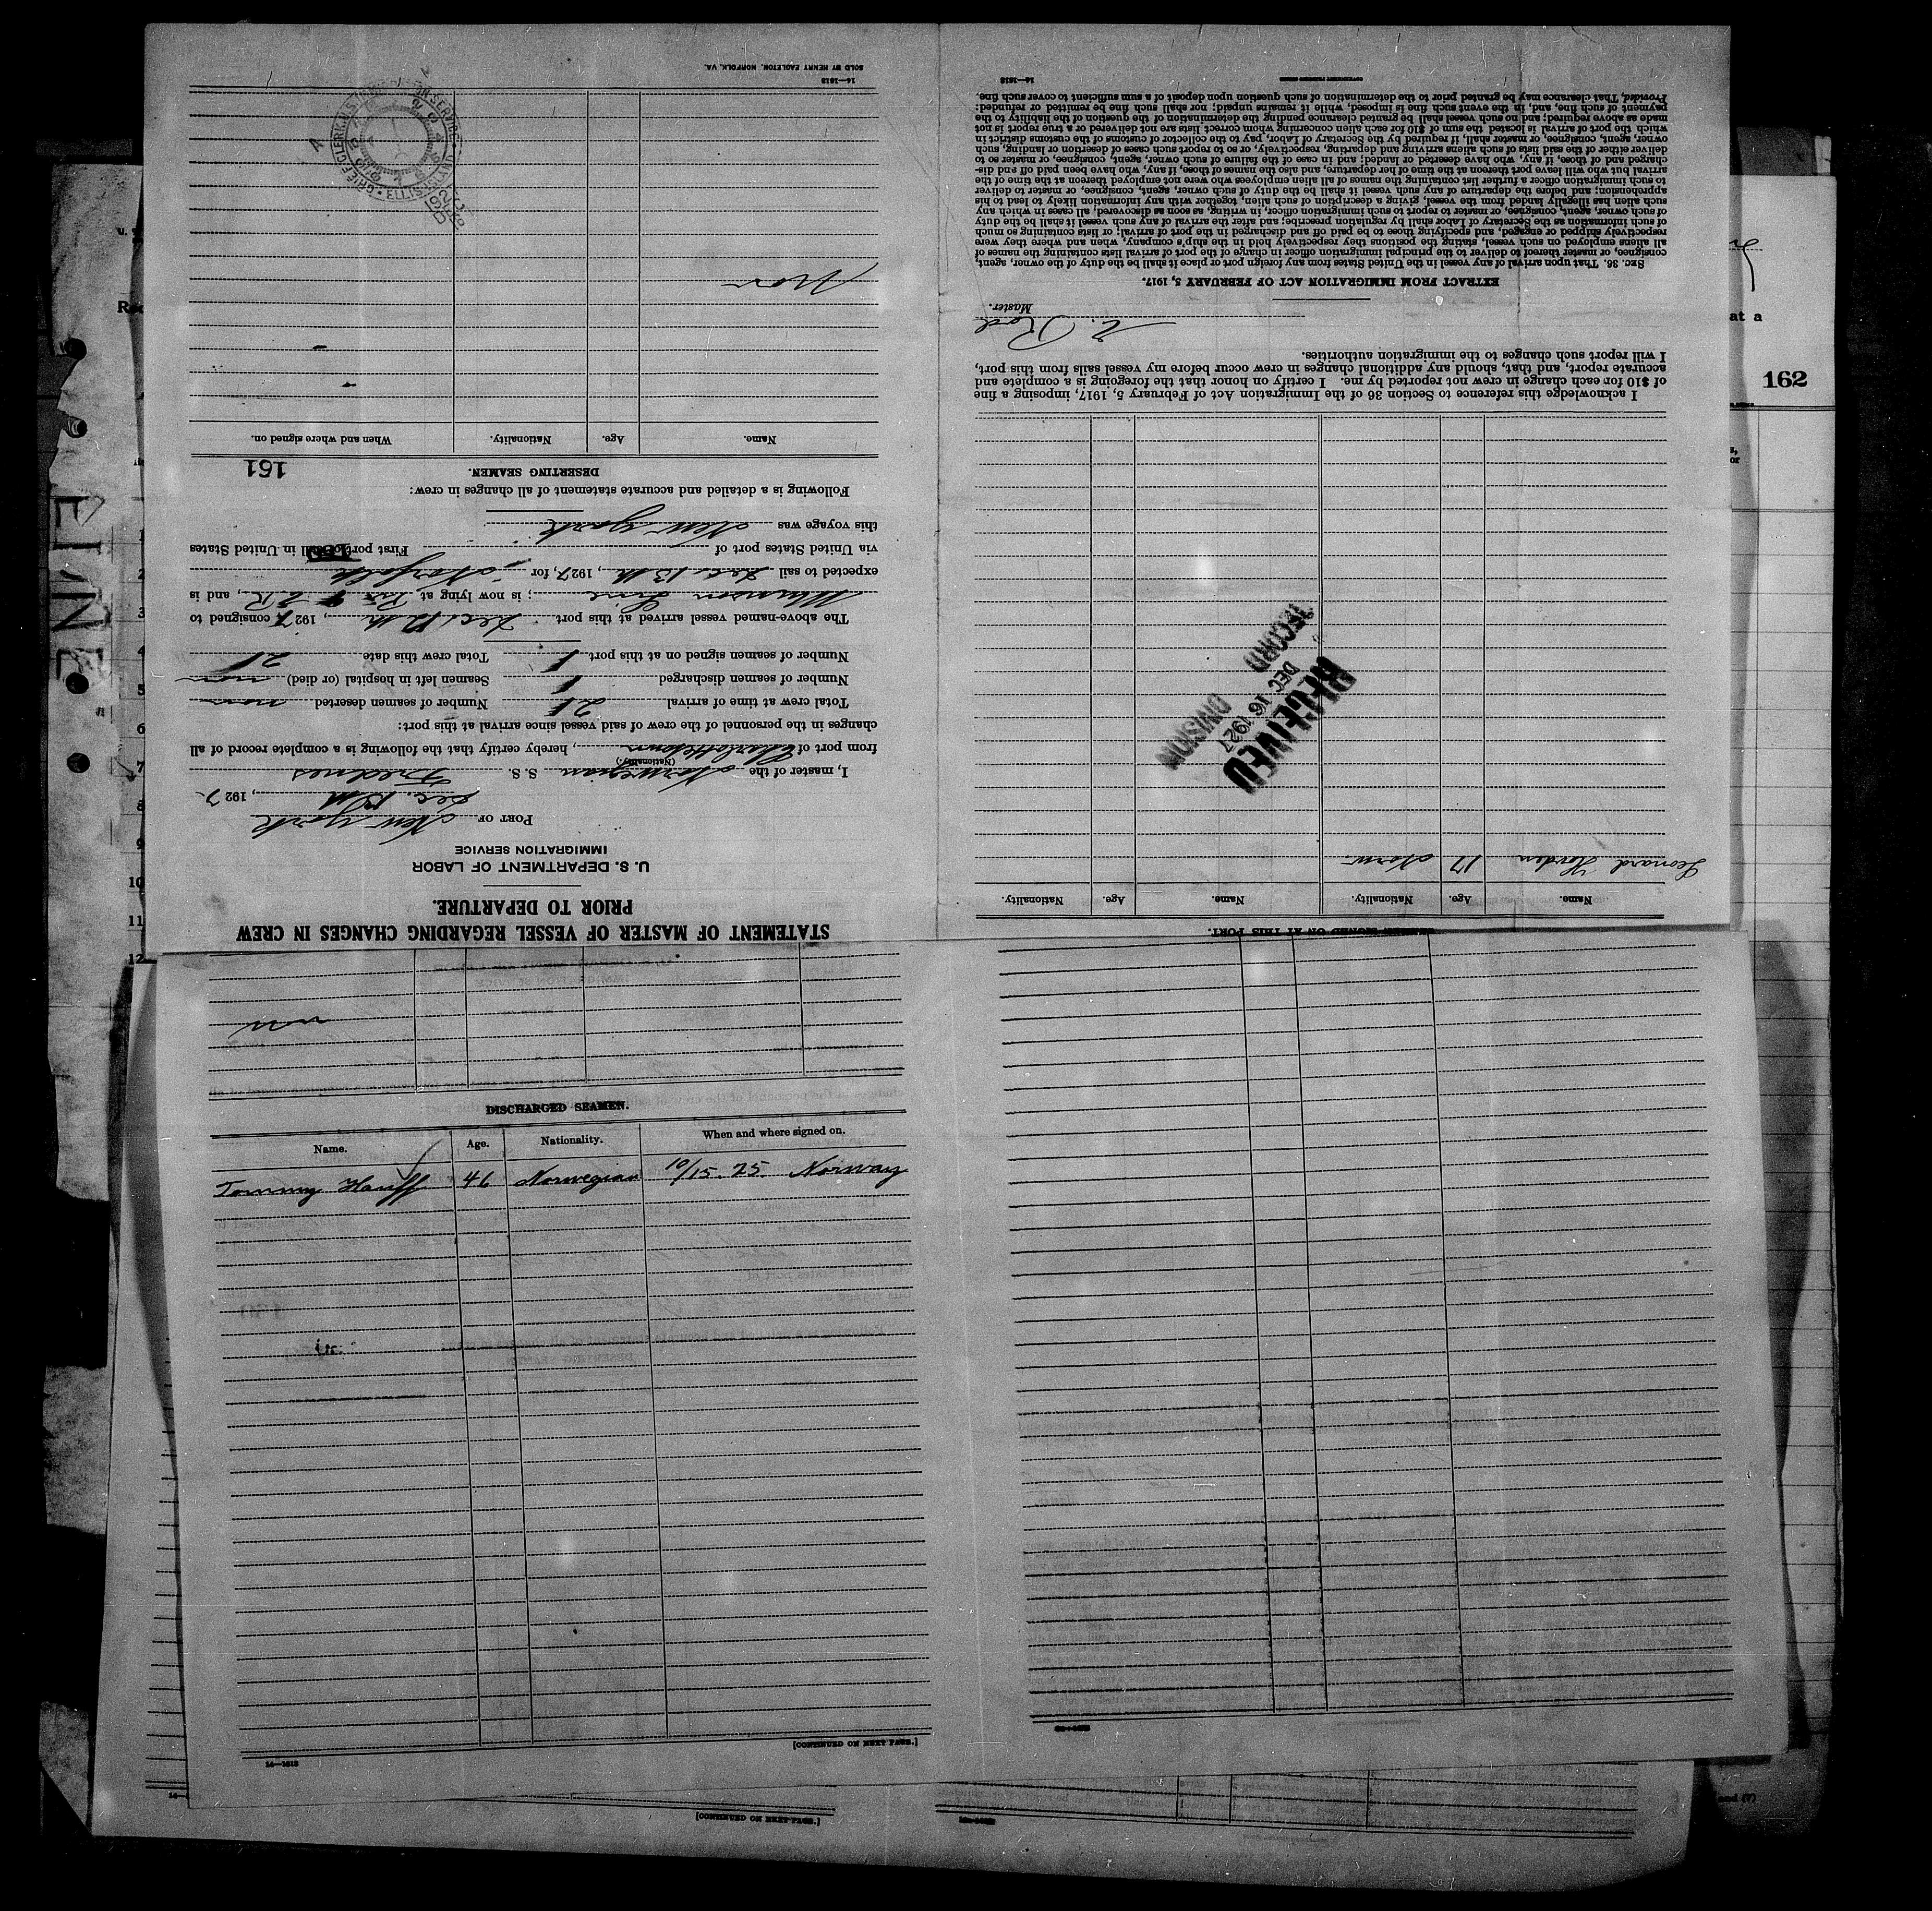 STATEMENT OF MASTER OF VESSEL REGARDING CHANGES IN CREW
PRIOR TO DEPARTURE.
U. S. DEPARTMENT OF LABOR
IMMIGRATION SERVICE
PORT OF New York
Dec. 12th, 1927
I, master of the Norwegian S. S. Frednes
(Nationality.)
from port of Charlottetown, hereby certify that the following is a complete record of all
changes in the personnel of the crew of said vessel since arrival at this port:
Total crew at time of arrival 21 Number of seamen deserted
Number of seamen discharged 1 Seamen left in hospital (or died)
Number of seamen signed on at this port 1 Total crew this date 21
The above-named vessel arrived at this port Dec. 12th, 1927, consigned to
Munson Line; is now lying at Pier 9 E.R., and is
expected to sail Dec. 13th, 1927, for Norfolk
via United States port of First port of call in United States
this voyage was New York
Following is a detailed and accurate statement of all changes in crew:
DESERTING SEAMEN.
161
Name. Age. Nationality. When and where signed on.
14—1618
SOLD BY HENRY EAGLETON, NORFOLK, VA.
SEAMEN SIGNED ON AT THIS PORT.
Name. Age. Nationality. Name. Age. Nationality.
Leonard 17 Norw.
RECEIVED
DEC 16 1927
RECORD DIVISION
I acknowledge this reference to Section 36 of the Immigration Act of February 5, 1917, imposing a fine
of $10 for each change in crew not reported by me. I certify on honor that the foregoing is a complete and
accurate report, and that, should any additional changes in crew occur before my vessel sails from this port,
I will report such changes to the immigration authorities.
Master.
EXTRACT FROM IMMIGRATION ACT OF FEBRUARY 5, 1917.
SEC. 36. That upon arrival of any vessel in the United States from any foreign port or place it shall be the duty of the owner, agent,
consignee, or master thereof to deliver to the principal immigration officer in charge of the port of arrival lists containing the names of
all aliens employed on such vessel, stating the positions they respectively hold in the ship's company, when and where they were
respectively shipped or engaged, and specifying those to be paid off and discharged in the port of arrival; or lists containing so much
of such information as the Secretary of Labor shall by regulation prescribe; and after the arrival of any such vessel it shall be the duty
of such owner, agent, consignee, or master to report to such immigration officer, in writing, as soon as discovered, all cases in which any
such alien has illegally landed from the vessel, giving a description of such alien, together with any information likely to lead to his
apprehension; and before the departure of any such vessel it shall be the duty of such owner, agent, consignee, or master to deliver
to such immigration officer a further list containing the names of all alien employees who were not employed thereon at the time of the
arrival but who will leave port thereon at the time of her departure, and also the names of those, if any, who have been paid off and dis-
charged and of those, if any, who have deserted or landed; and in case of the failure of such owner, agent, consignee, or master so to
deliver either of the said lists of such aliens arriving and departing, respectively, or so to report such cases of desertion or landing, such
owner, agent, consignee, or master shall, if required by the Secretary of Labor, pay to the collector of customs of the customs district in
which the port of arrival is located the sum of $10 for each alien concerning whom correct lists are not delivered or a true report is not
made as above required; and no such vessel shall be granted clearance pending the determination of the question of the liability to the
payment of such fine, and, in the event such fine is imposed, while it remains unpaid; nor shall such fine be remitted or refunded:
Provided, That clearance may be granted prior to the determination of such question upon deposit of a sum sufficient to cover such fine.
14—1618
162
DISCHARGED SEAMEN.
Name. Age. Nationality. When and where signed on.
Tommy Hauff 46 Norwegian 10/15. 25. Norway
[CONTINUED ON NEXT PAGE.]
14—1618
[CONTINUED ON NEXT PAGE.]